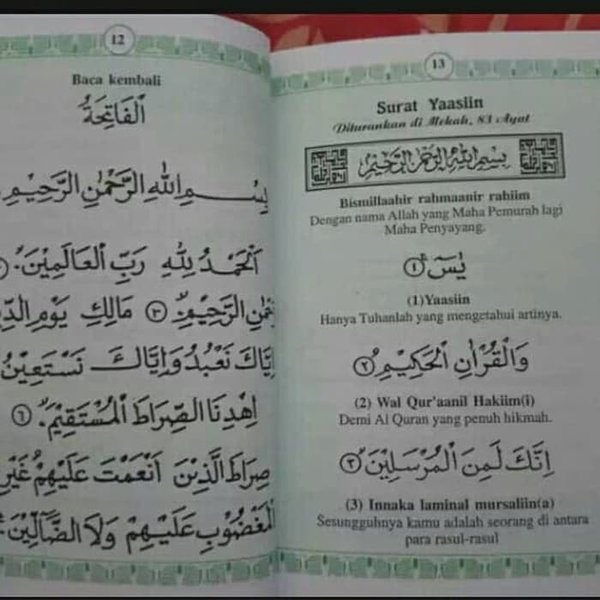 12
Baca kembali
اَلْفَاتِحَةُ
بِسْمِ اللهِ الرَّحْمٰنِ الرَّحِيْمِ
اَلْحَمْدُ لِلّٰهِ رَبِّ الْعَالَمِيْنَۙ
الرَّحِيْمِۙ ﴿٣﴾ مَالِكِ يَوْمِ
اِيَّاكَ نَعْبُدُ وَاِيَّاكَ نَسْتَعِيْنُ
اِهْدِنَا الصِّرَاطَ الْمُسْتَقِيْمَۙ ﴿٦﴾
صِرَاطَ الَّذِيْنَ اَنْعَمْتَ عَلَيْهِمْ غَيْرِ
الْمَغْضُوْبِ عَلَيْهِمْ وَلَا الضَّالِّيْنَ
13
Surat Yaasiin
Diturunkan di Mekah, 83 Ayat
بِسْمِ اللهِ الرَّحْمٰنِ الرَّحِيْمِ
Bismillaahir rahmaanir rahiim
Dengan nama Allah yang Maha Pemurah lagi
Maha Penyayang.
يٰسۤ ﴿١﴾
(1)Yaasiin
Hanya Tuhanlah yang mengetahui artinya.
وَالْقُرْاٰنِ الْحَكِيْمِۙ ﴿٢﴾
(2) Wal Qur'aanil Hakiim(i)
Demi Al Quran yang penuh hikmah.
اِنَّكَ لَمِنَ الْمُرْسَلِيْنَۙ ﴿٣﴾
(3) Innaka laminal mursaliin(a)
Sesungguhnya kamu adalah seorang di antara
para rasul-rasul